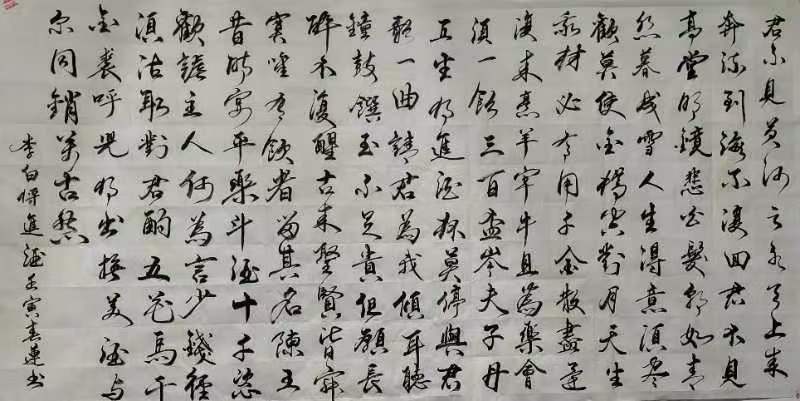 君不見黃河之水天上來
奔流到海不復回君不見
高堂明鏡悲白髮朝如青
丝暮成雪人生得意須尽
歡莫使金樽空對月天生
我材必有用千金散盡還
復来烹羊宰牛且為樂會
須一飲三百盃岑夫子丹
丘生將進酒杯莫停與君
歌一曲請君為我傾耳聽
鐘鼓饌玉不足貴但願長
醉不復醒古来聖賢皆寂
寞唯有飲者留其名陳王
昔時宴平樂斗酒十千恣
歡謔主人何為言少錢徑
須沽取對君酌五花馬千
金裘呼兒將出換美酒与
尔同銷萬古愁
李白將進酒壬寅春蓮书